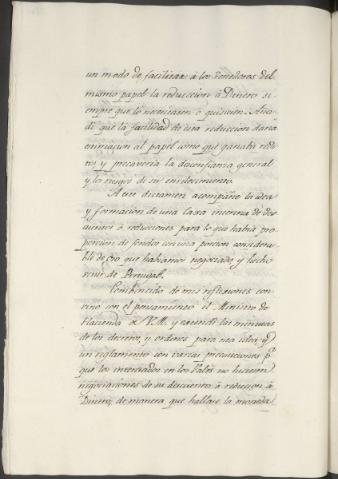 un modo de facilitar á los tenedores del
mismo papel la reduccion á Dinero si-
empre que lo necesitasen ó quisiesen. Aña-
di que la facilidad de esta reducción daria
estimacion al papel como que ganaba redi-
tos y precaveria la desconfianza general
y lo mayor de su envilecimiento.
A este dictamen acompañe la idea
y formacion de una Caxa interina de des-
cuentos ó reducciones para lo que habia pro-
porcion de fondos con una porcion considera-
ble de oro que habiamos negociado, y hecho
venir de Portugal.
Combencido de mis reflexiones con-
vino con el pensamiento el Ministro de
Hacienda de V.M. y extendi las minutas
de los decretos, y ordenes para esa idea y
un reglamento con varias precauciones pª
que los interesados en los Vales no hiciesen
negociaciones de su descuento ó reduccion á
Dinero, de manera que hallase la moneda